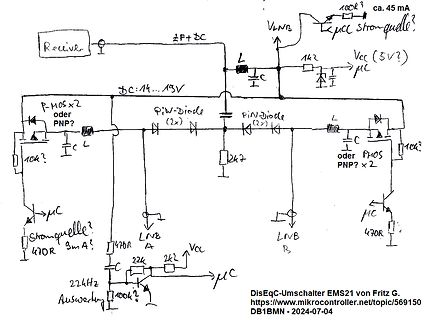 100k?
ca. 45 mA
VLNB
µC Stromquelle?
Receiver
ZF+DC
L
C
1k
Vcc (5V?)
µC
DC: 14...19V
P-MOS x2
oder
PNP?
C
L
PiN-Diode
(2x)
PiN-Diode
(2x)
L
C
oder
PNP?
P-MOS
x 2
10k?
10k?
2k7
µC
µC
Stromquelle?
3mA?
470R
LNB
A
LNB
B
470R
470R
C
22k
2k2
Vcc
µC
22kHz
Auswertung
100k?
DisEqC-Umschalter EMS21 von Fritz G.
https://www.mikrocontroller.net/topic/569150
DB1BMN - 2024-07-04